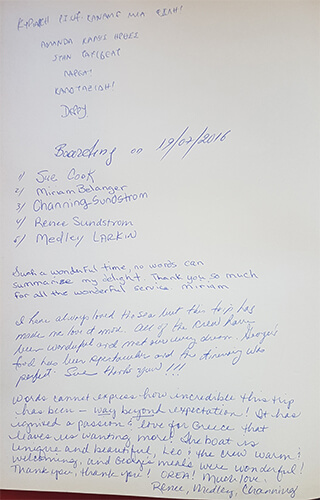 Boarding on 19/07/2016
1/ Sue Cook
2/ Miriam Belanger
3/ Channing Sundstrom
4/ Renee Sundstrom
5/ Medley LARKIN
Such a wonderful time, no words can
summarise my delight. Thank you so much
for all the wonderful service. Miriam
I have always loved the sea but this trip has
made me love it more. All of the crew have
been wonderful and met our every dream. George's
food has been spectacular and the itinerary was
perfect. Sue Thank you!!!
Words cannot express how incredible this trip
has been - way beyond expectation! It has
ignited a passion & love for Greece that
leaves us wanting more! The boat is
unique and beautiful, Leo & the crew warm &
welcoming, and George's meals were wonderful!
Thank you, thank you! OREA! Much love,
Renee, Medley, Channing